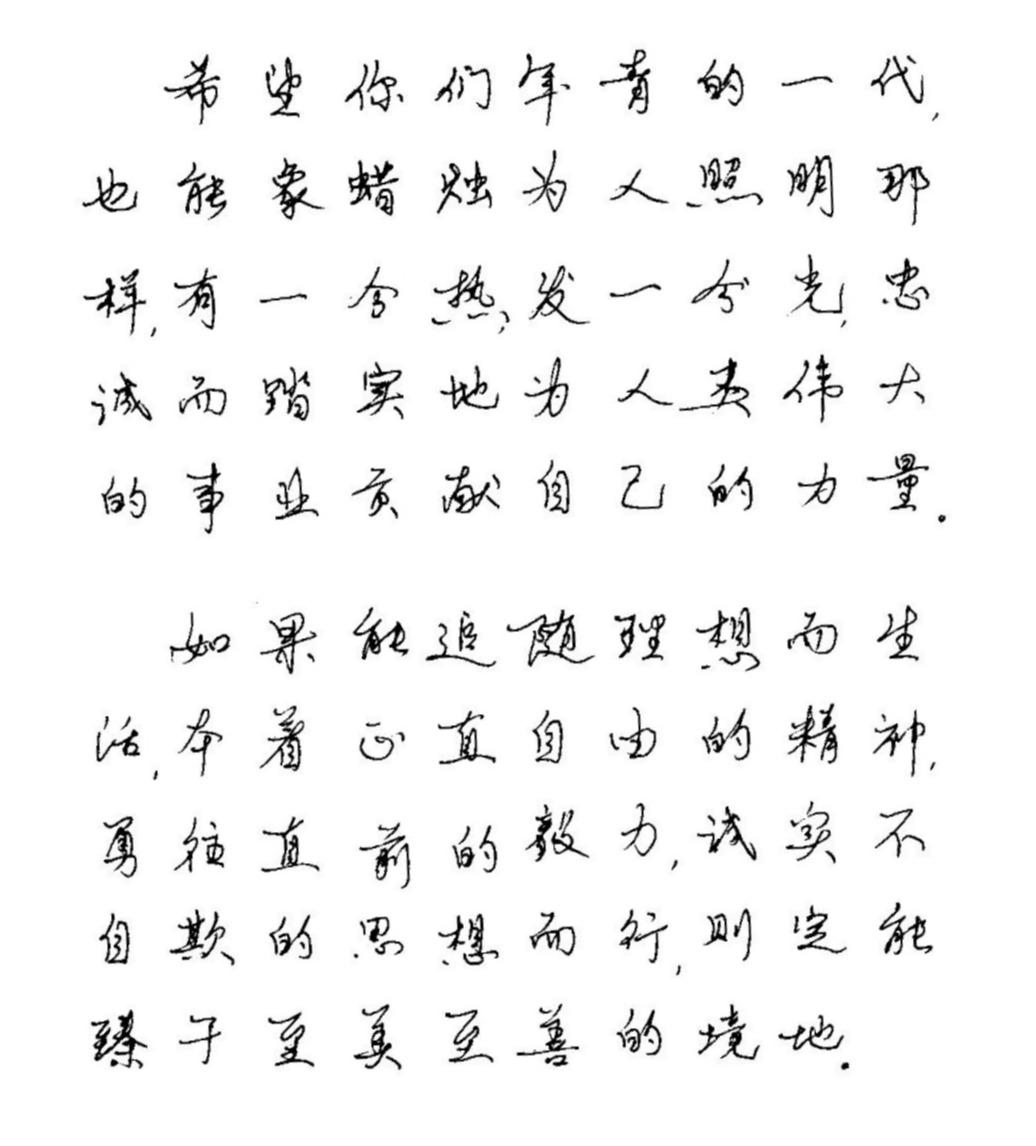 希望你们年青的一代,
也能象蜡烛为人照明那
样,有一分热,发一分光,忠
诚而踏实地为人类伟大
的事业贡献自己的力量.
如果能追随理想而生
活,本着正直自由的精神,
勇往直前的毅力,诚实不
自欺的思想而行,则定能
臻于至美至善的境地.